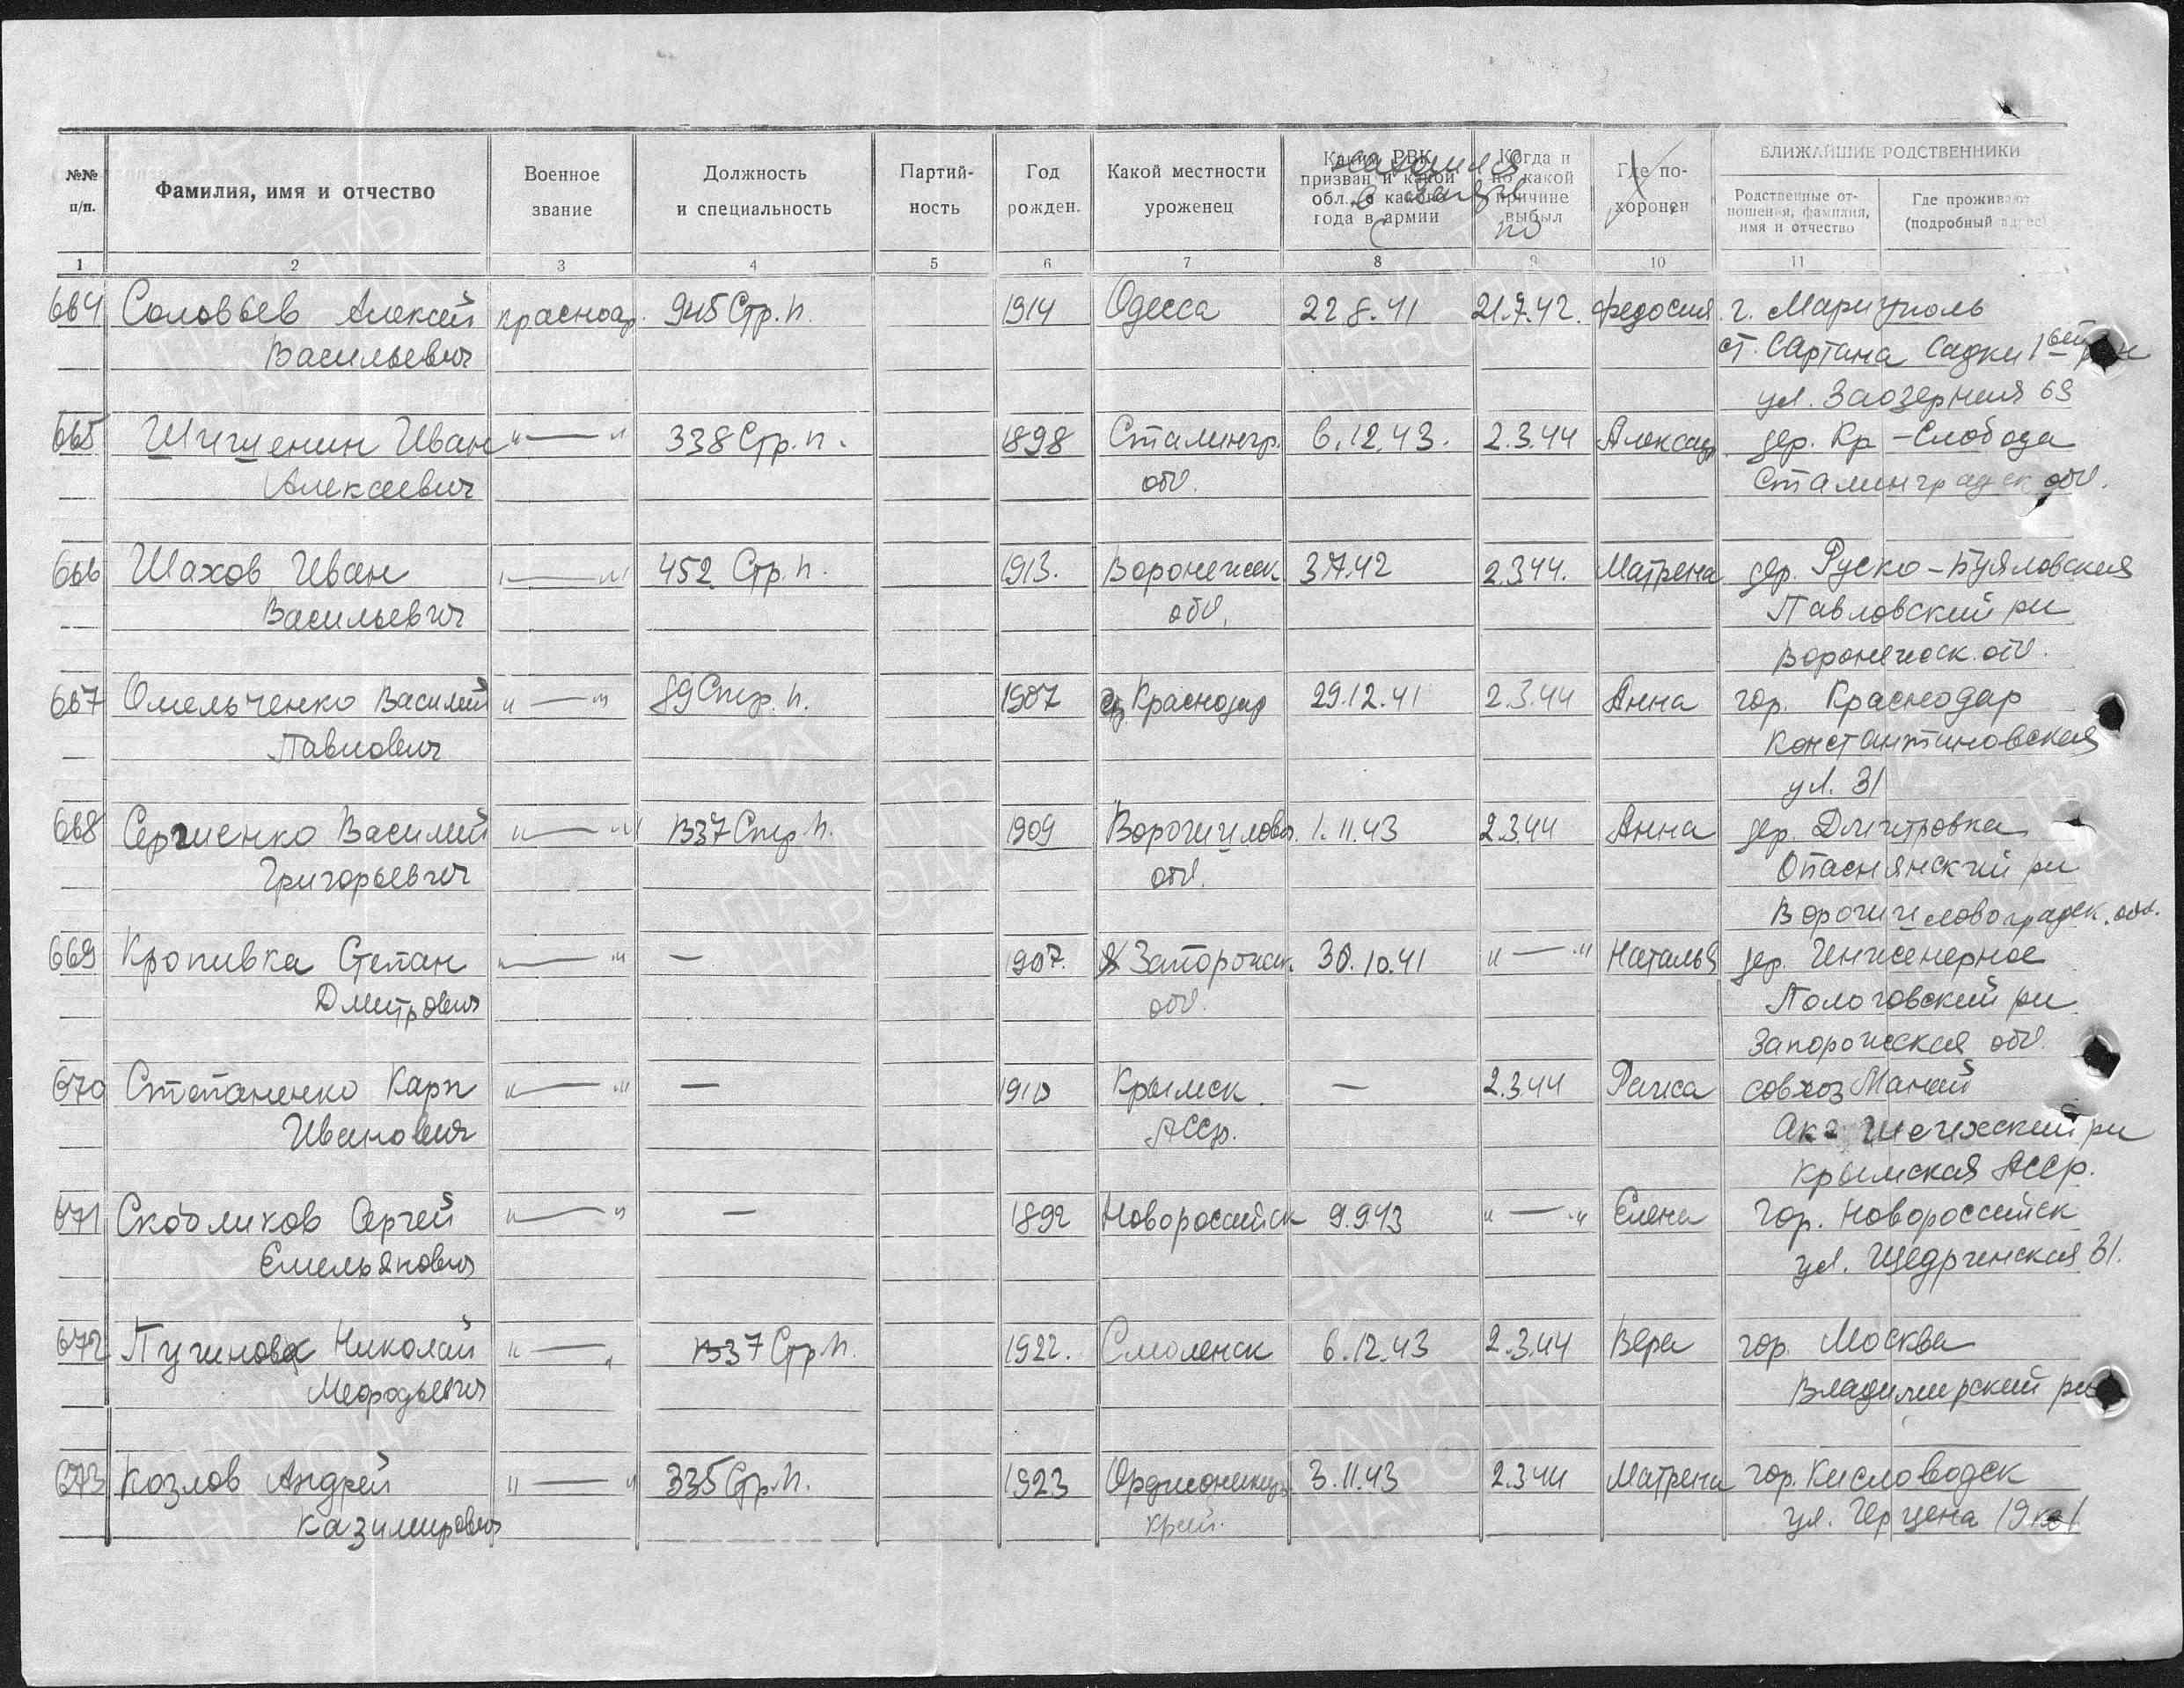 №№ п/п. Фамилия, имя и отчество Военное звание Должность и специальность Партийность Год рожден. Какой местности уроженец Каким РВК призван и какой обл., с какого года в армии Когда и по какой причине выбыл Где похоронен БЛИЖАЙШИЕ РОДСТВЕННИКИ
Родственные отношения, фамилия, имя и отчество Где проживают (подробный адрес)
находился в
по
1 2 3 4 5 6 7 8 9 10 11
664 Соловьев Алексей красноар. 945 Стр. п. 1914 Одесса 22 8.41 21.7.42. Федосия г. Мариуполь
Васильевич ст. Сартана Садки 1
ул. Заозерная 69
665 Шишенин Иван "—" 338 Стр. п. 1898 Сталингр. 6.12.43. 2.3.44 Александр. дер. Кр-Слобода
Алексеевич обл. Сталинградск обл.
666 Шахов Иван "—" 452 Стр. п. 1913. Воронежск 3.7.42 2.3.44. Матрена дер. Руско-Буяловская
Васильевич обл. Павловский рн
Воронежск. обл.
667 Омельченко Василий "—" 89 Стр. п. 1907 Краснодар 29.12.41 2.3.44 Анна гор. Краснодар
Павлович Константиновская
ул. 31
668 Сергиенко Василий "—" 1337 Стр п. 1909 Ворошилово. 1.11.43 2.3.44 Анна дер. Дмитровка
Григорьевич обл. Опаснянский рн
Ворошиловоградск. обл.
669 Кропивка Степан "—" — 1907. Запорожск. 30.10.41 "—" Наталья дер. Инженерное
Дмитрович обл. Пологовский рн
Запорожская обл.
670 Степаненко Карп "—" — 1910 Крымск. — 2.3.44 Раиса совхоз
Иванович АССр. рн
Крымская АССр.
671 Скобликов Сергей "—" — 1892 Новороссийск 9.9.43 "—" Елена гор. Новороссийск
Емельянович ул. Щедринская 31.
672 Николай "—" 1337 Стр п. 1922. Смоленск 6.12.43 2.3.44 Вера гор. Москва
Владимирский рн
673 Козлов Андрей "—" 335 Стр. п. 1923 Орджоникидз. 3.11.43 2.3.44 Матрена гор. Кисловодск
Казимирович край. ул. Герцена 19